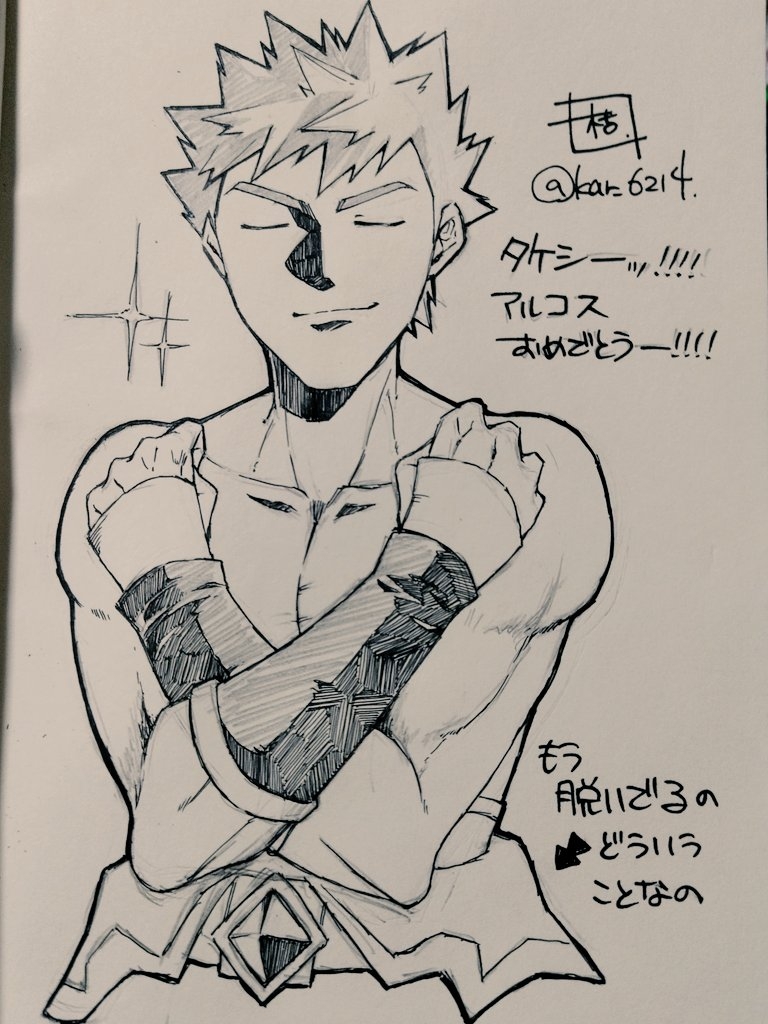 桔
@kar_6214.
タケシーッ!!!!
アルコス
おめでとうー!!!!
もう
脱いでるの
どういう
ことなの